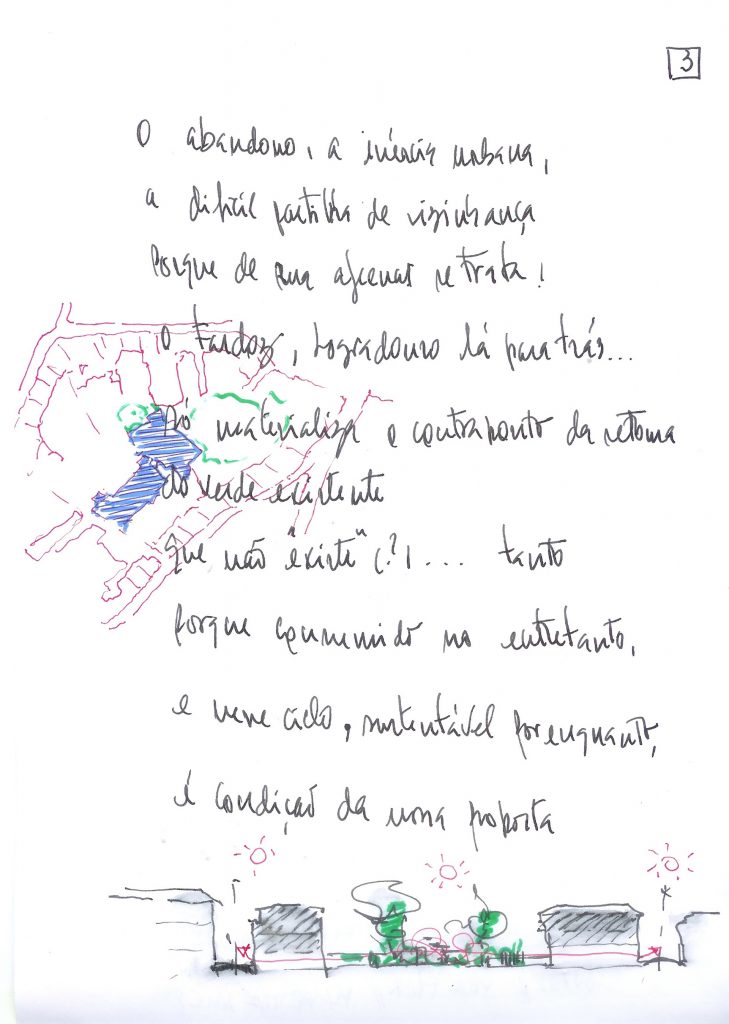 3
O abandono, a inércia urbana,
a difícil partilha de vizinhança
porque de rua apenas se trata!
O tardoz, logradouro lá para trás...
Só materializa o contraponto da retoma
do verde existente
que não "existe" (?)... tanto
porque consumido no entretanto,
e nesse ciclo, sustentável por enquanto,
é condição da nossa proposta